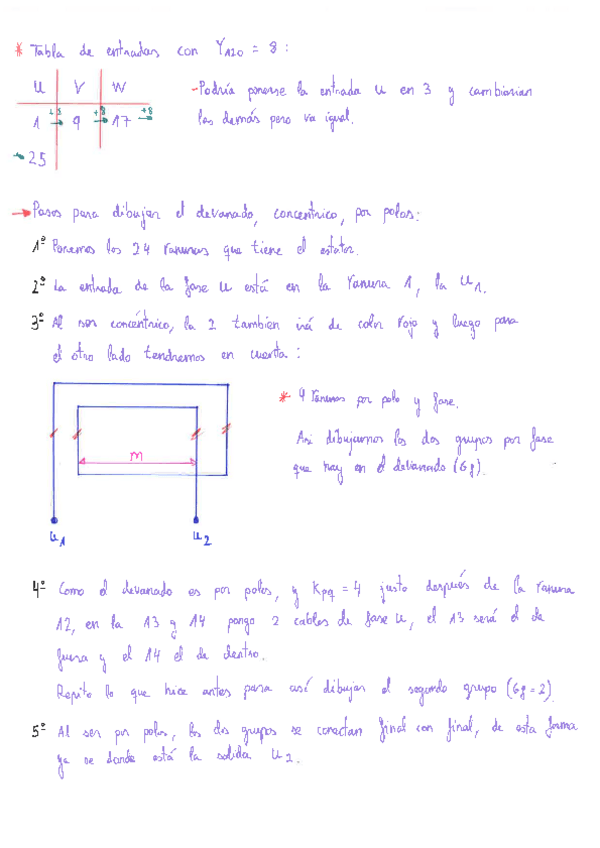 * Tabla de entradas con Y120 = 8 :
U V W
+8 +8 +8
1 → 9 → 17 →
→ 25
- Podría ponerse la entrada U en 3 y cambiarían
las demás pero va igual.
→ Pasos para dibujar el devanado, concéntrico, por polos:
1º Ponemos las 24 ranuras que tiene el estator.
2º La entrada de la fase U está en la ranura 1, la U1.
3º Al ser concéntrico, la 2 también irá de color rojo y luego para
el otro lado tendremos en cuenta :
* 4 ranuras por polo y fase.
Así dibujamos los dos grupos por fase
que hay en el devanado (Gg).
m
U1 U2
4º Como el devanado es por polos, y Kpq = 4 justo después de la ranura
12, en la 13 y 14 pongo 2 cables de fase U, el 13 será el de
fuera y el 14 el de dentro.
Repito lo que hice antes para así dibujar el segundo grupo (Gg = 2).
5º Al ser por polos, los dos grupos se conectan final con final, de esta forma
ya se donde está la salida U2.